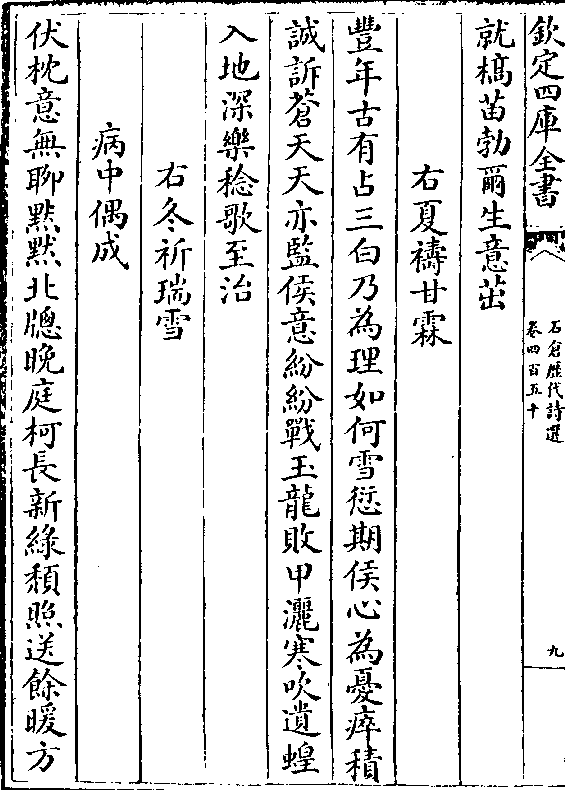 欽定四庫全書
石倉歷代詩選
卷四百五十
九
就槁苗勃爾生意茁
右夏禱甘霖
豐年古有占三白乃為理如何雪愆期侯心為憂瘁積
誠訴蒼天天亦監侯意紛紛戰玉龍敗甲灑寒吹遺蝗
入地深樂稔歌至治
右冬祈瑞雪
病中偶成
伏枕意無聊㸃默北牕晚庭柯長新綠頹照送餘暖方